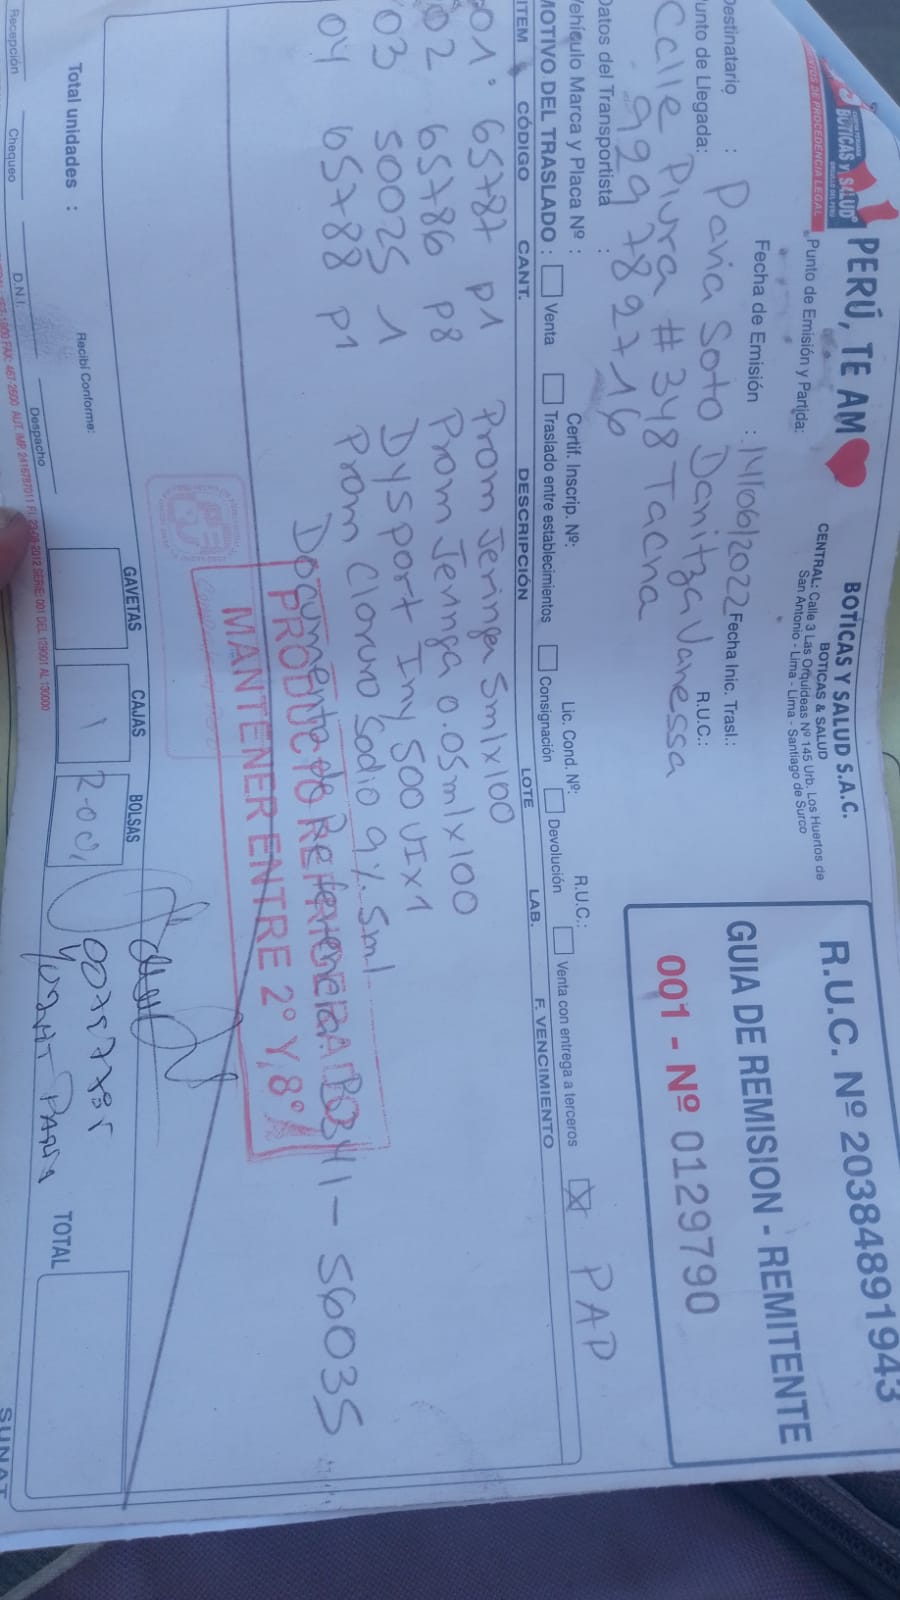 BOTICAS Y SALUD
PUNTOS DE PROCEDENCIA LEGAL
PERÚ, TE AM
BOTICAS Y SALUD S.A.C.
BOTICAS & SALUD
CENTRAL: Calle 3 Las Orquideas Nº 145 Urb. Los Huertos de
San Antonio - Lima - Lima - Santiago de Surco
R.U.C. Nº 20384891943
GUIA DE REMISION - REMITENTE
001 - Nº 0129790
Punto de Emisión y Partida:
Fecha de Emisión : 14/06/2022 Fecha Inic. Trasl.:
Destinatario : Pavia Soto Danitza Vanessa R.U.C.:
Punto de Llegada: Calle Piura # 348 Tacna
999 782716
Datos del Transportista :
Vehículo Marca y Placa Nº : Certif. Inscrip. Nº: Lic. Cond. Nº: R.U.C.:
MOTIVO DEL TRASLADO : Venta Traslado entre establecimientos Consignación Devolución Venta con entrega a terceros X PAP
ITEM CÓDIGO CANT. DESCRIPCIÓN LOTE LAB. F. VENCIMIENTO
01 65787 P1 Prom Jeringa 5mlx100
02 65786 P8 Prom Jeringa 0.05mlx100
03 50025 1 Dysport Iny 500 UI x1
04 65788 P1 Prom Cloruro Sodio 9%. 5ml
Documento de Referencia: B341-56035
PRODUCTO REFRIGERADO
MANTENER ENTRE 2° Y 8°
GAVETAS CAJAS BOLSAS
Total unidades : 1 TOTAL
Recibí Conforme:
Recepción Chequeo D.N.I. Despacho
FAX: 467-2600 AUT. IMP. 2416787011 F.I. 23-08-2012 SERIE: 001 DEL 129001 AL 130000
SUNAT